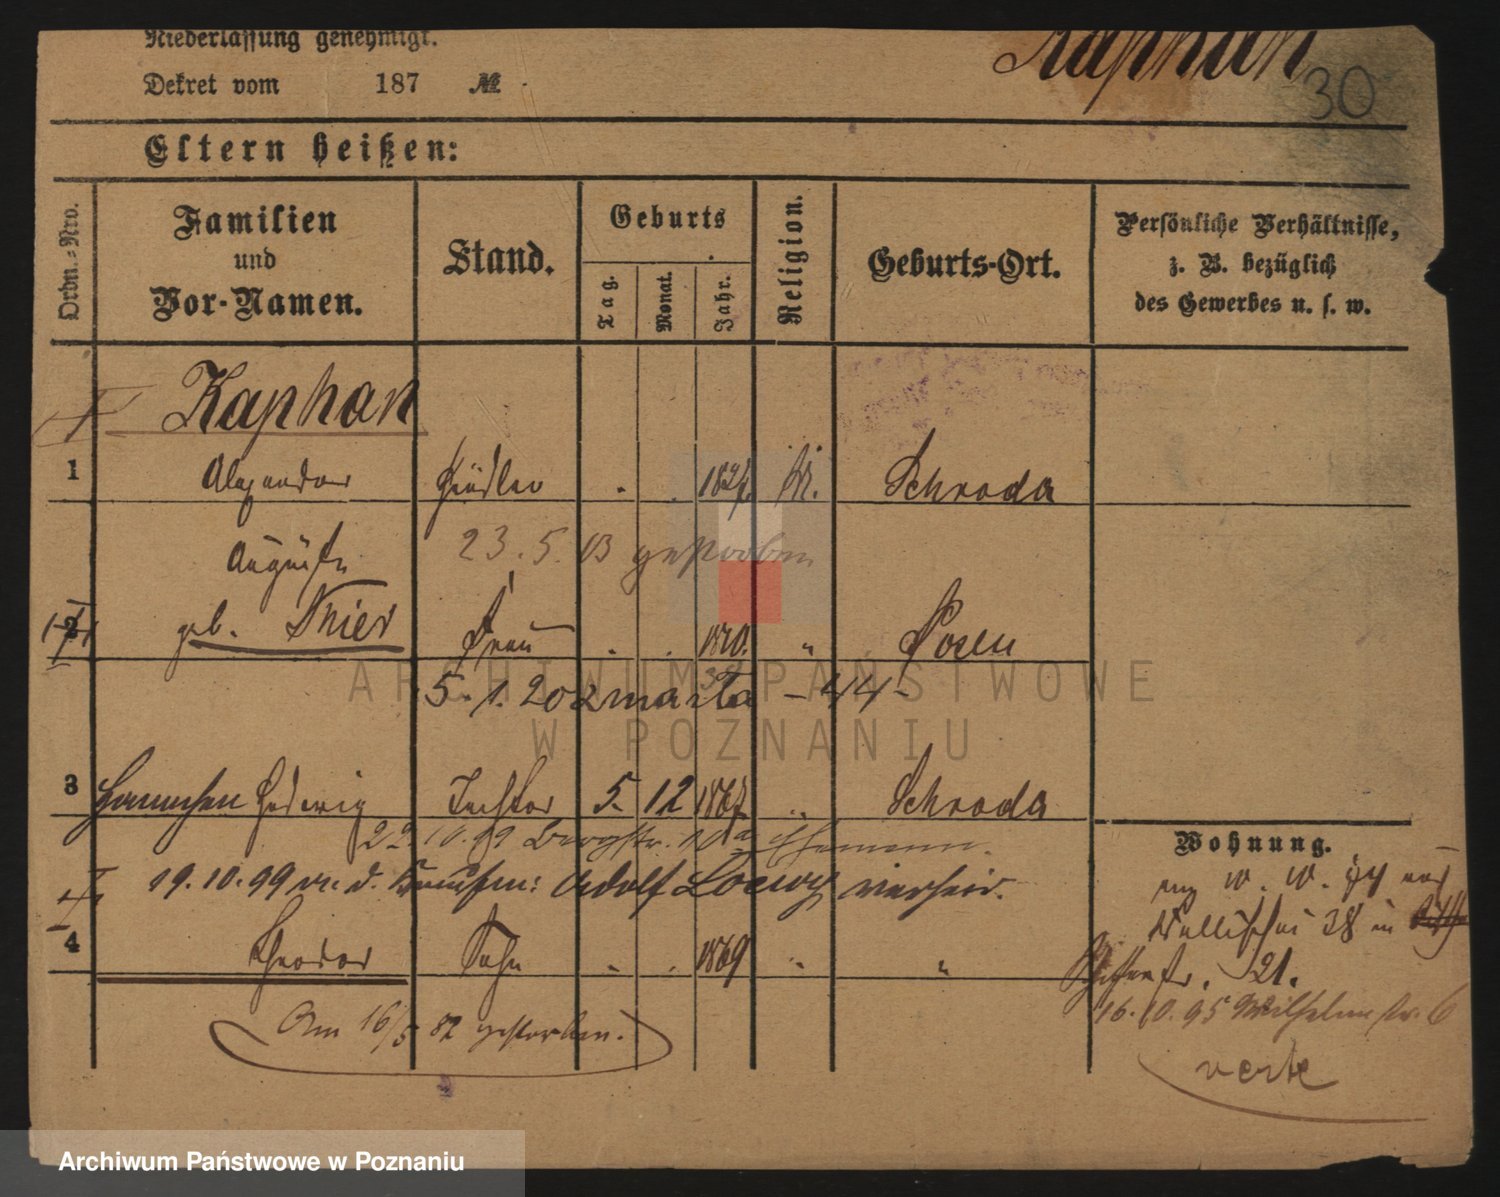 Niederlassung genehmigt.
Kaphan
30
Dekret vom 187 №
Eltern heißen:
Ordn.-Nro.
Familien
und
Vor-Namen.
Stand.
Geburts
Tag.
Monat.
Jahr.
Religion.
Geburts-Ort.
Persönliche Verhältnisse,
z. B. bezüglich
des Gewerbes u. s. w.
Kaphan
1 Alexander Händler . . Schroda
23. 5. 03 gestorben
Auguste
2 geb. Thier Frau . . " Posen
5. 1. 20 zmarła - 44 -
3 Hannchen Hedwig Tochter 5. 12 1867 " Schroda
22. 10. 99 Bergstr. 10a Ehemann.
19. 10. 99 m. d. Kaufm: Adolf Loewy verheir.
4 Theodor Sohn . . 1869 " "
Am 16/5 82 gestorben.
Wohnung.
Wallischei 38 in
21.
16. 10. 95 Wilhelmstr. 6
verte
ARCHIWUM PAŃSTWOWE
W POZNANIU
Archiwum Państwowe w Poznaniu